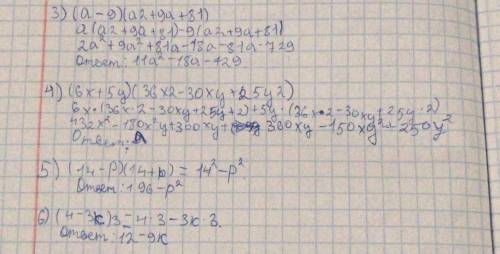 3) (a-9)(a2+9a+81)
a(a2+9a+81)-9(a2+9a+81)
2a²+9a²+81a-18a-81a-729
Ответ: 11a²-18a-729
4) (6x+5y)(36x2-30xy+25y2)
6x·(36x·2-30xy+25y+2)+5y·(36x·2-30xy+25y·2)
432x²-180x²y+300xy+ 360xy-150xy²+250y²
Ответ:
5) (14-p)(14+p)=14²-p²
Ответ: 196-p²
6) (4-3к)3=4·3-3к·3.
Ответ: 12-9к